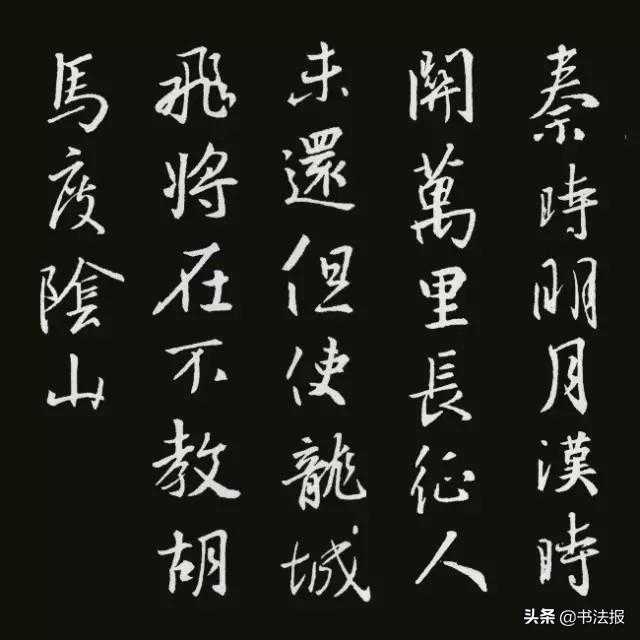 秦時明月漢時
關萬里長征人
未還但使龍城
飛將在不教胡
馬度陰山
头条 @书法报